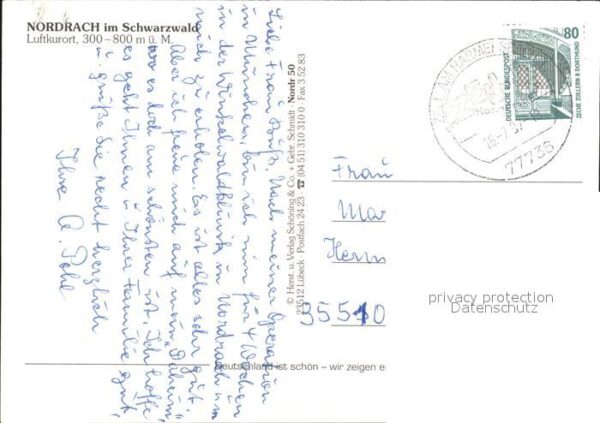 NORDRACH im Schwarzwald
Luftkurort, 300–800 m ü. M.
Liebe Frau Nach meiner Operation
in München, bin ich nun für 4 Wochen
in der Winkelwaldklinik in Nordrach um
mich zu erholen. Es ist alles sehr gut.
Aber ich freue mich auf mein "Daheim",
wo es doch am schönsten ist. Ich hoffe,
es geht Ihnen u. Ihrer Familie gut,
u. grüße Sie recht herzlich
Ihre A. Pohl
© Herst. u. Verlag Schöning & Co. + Gebr. Schmidt · Nordr 50
23512 Lübeck · Postfach 24 23 · ☎ (04 51) 310 310 0 · Fax 3 52 83
80
DEUTSCHE BUNDESPOST
ZECHE ZOLLERN II DORTMUND
ZELL AM HARMERSBACH
77736
Frau
Mar
Herrn
35510
privacy protection
Datenschutz
Deutschland ist schön – wir zeigen es